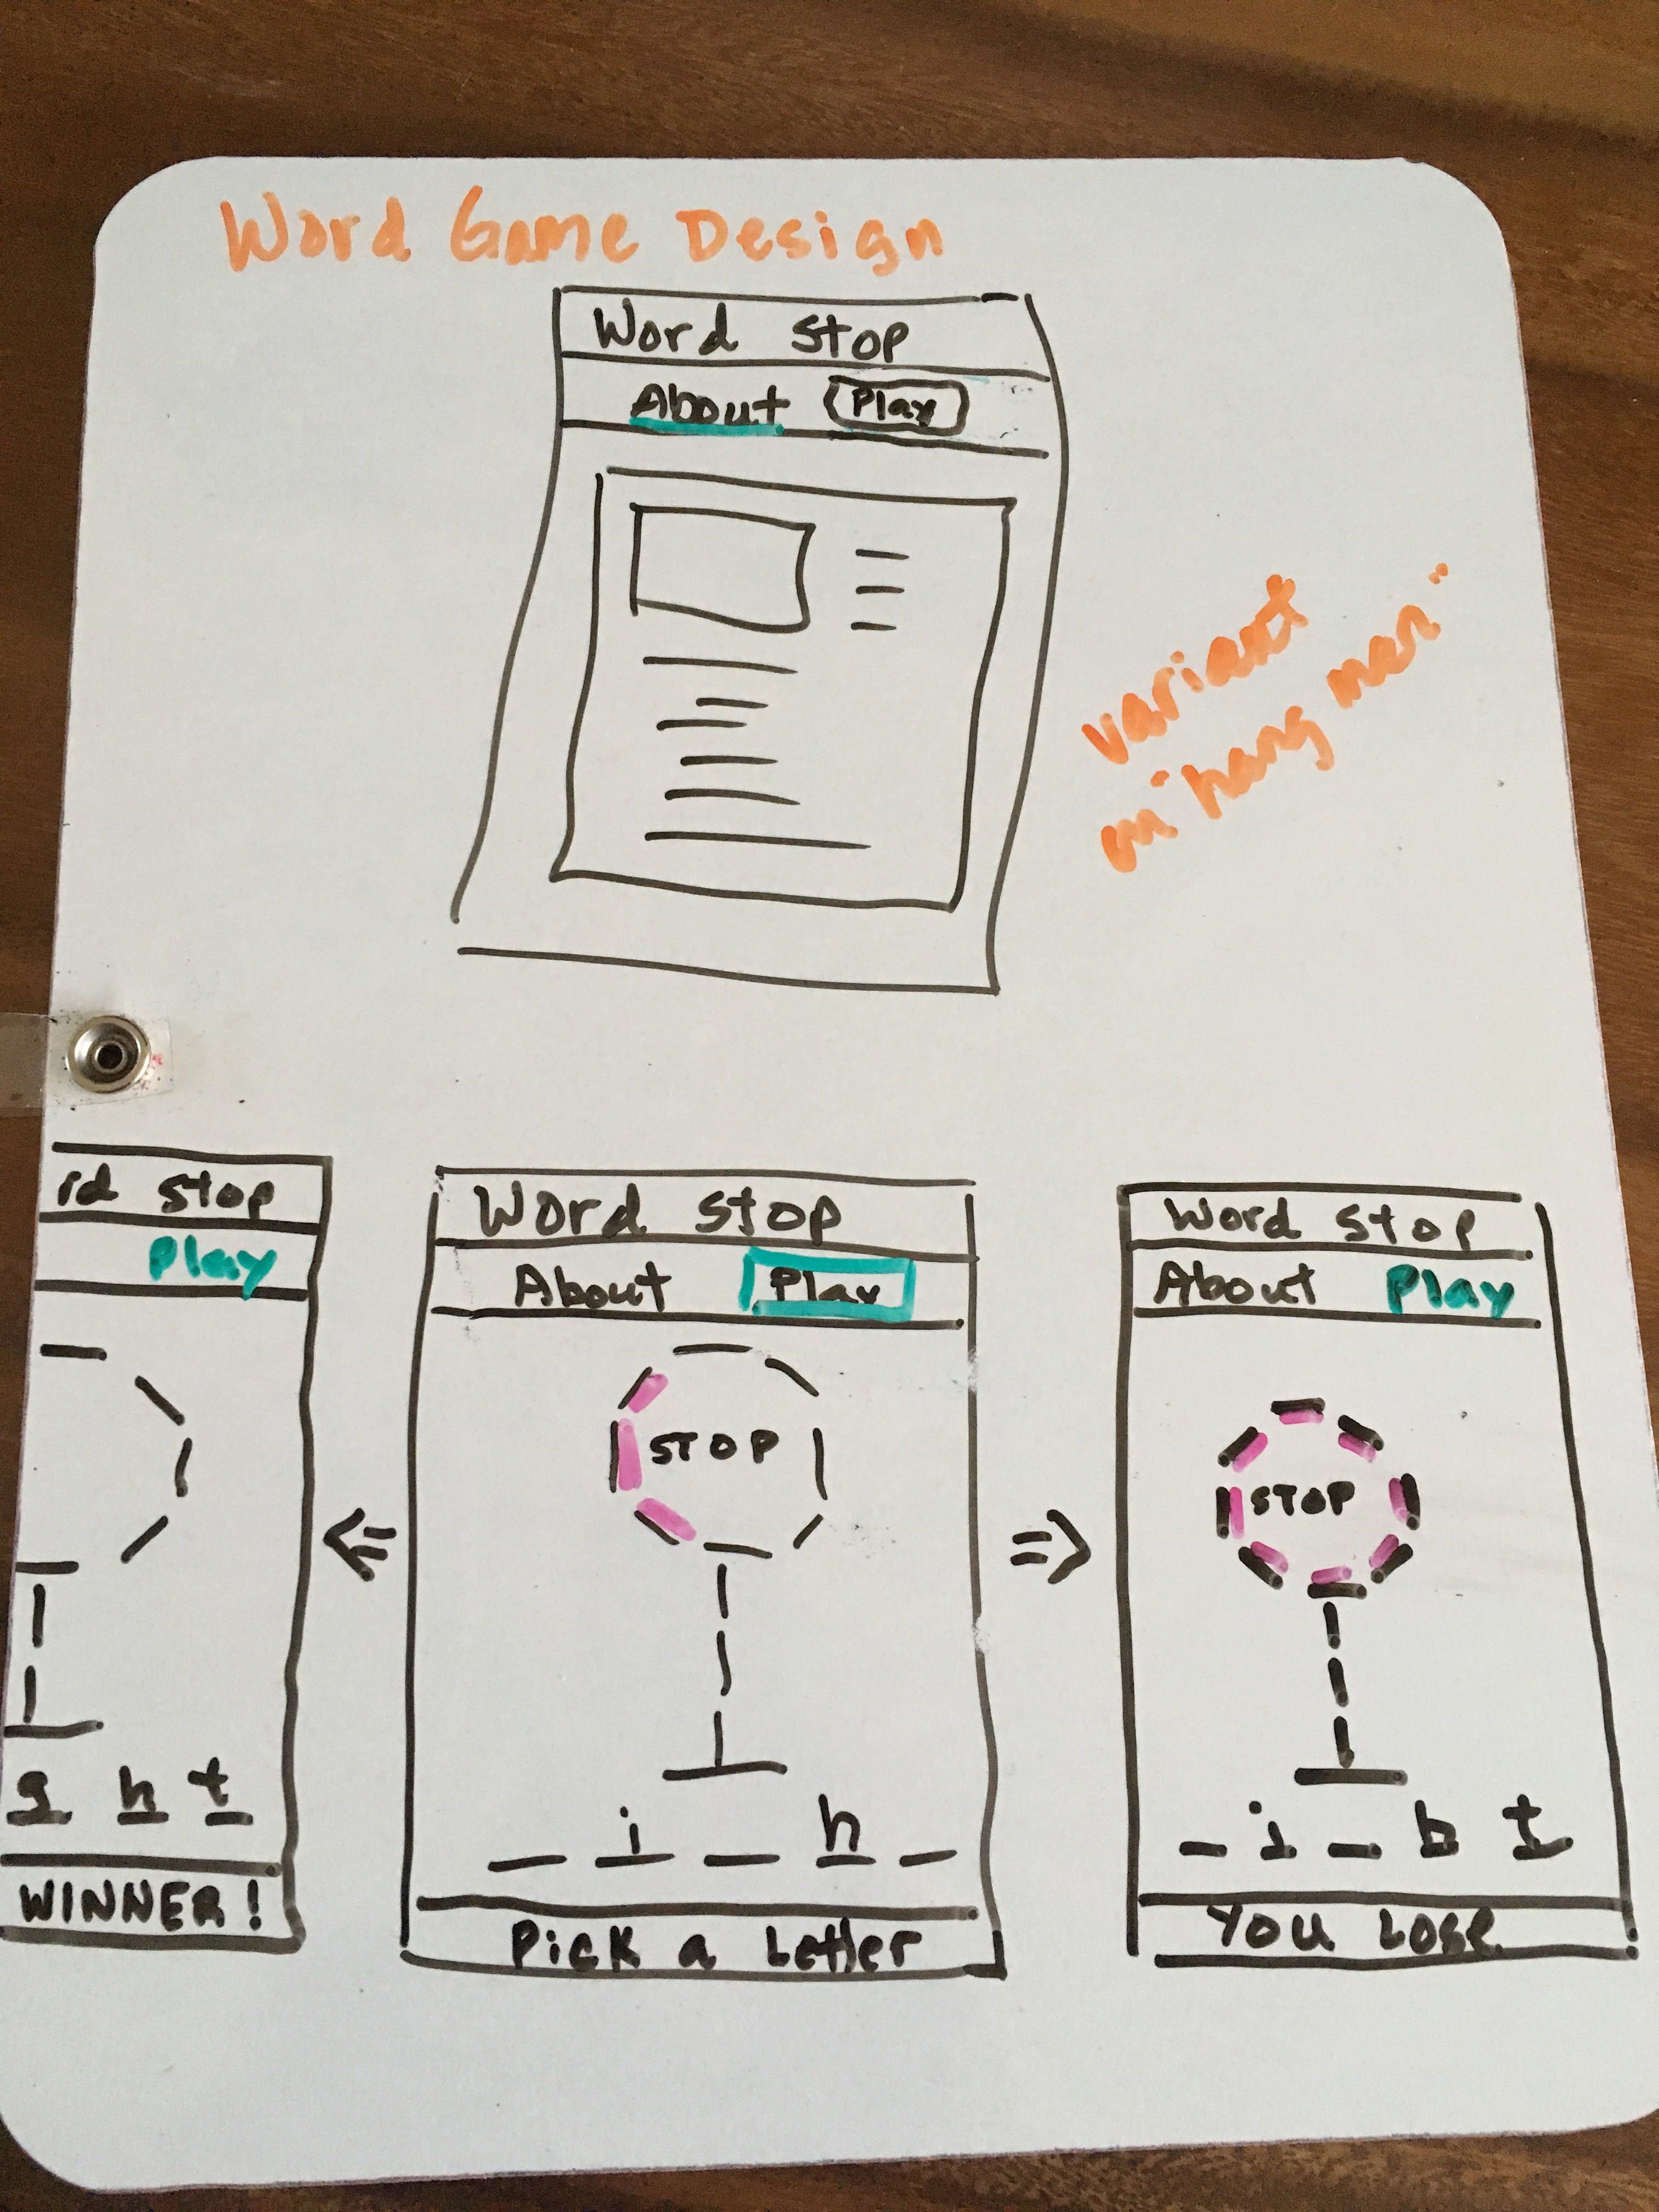 Word Game Design
Word Stop
About Play
variant
on "hang man"
rd Stop
Play
g h t
WINNER!
Word Stop
About Play
STOP
_ i _ h _
Pick a Letter
Word Stop
About Play
STOP
_ i _ h t
You Lose